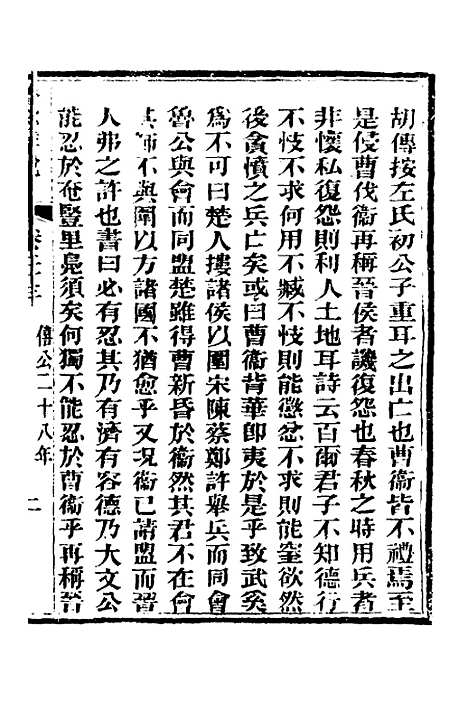 胡傳按左氏初公子重耳之出亡也曹衞皆不禮焉至
是侵曹伐衞再稱晉侯者譏復怨也春秋之時用兵者
非懷私復怨則利人土地耳詩云百爾君子不知德行
不忮不求何用不臧不忮則能懲忿不求則能窒欲然
後貪憤之兵亡矣或曰曹衞背華卽夷於是乎致武奚
爲不可曰楚人摟諸侯以圍宋陳蔡鄭許舉兵而同會
魯公與會而同盟楚雖得曹新昏於衞然其君不在會
其師不與圍以方諸國不猶愈乎又况衞已請盟而晉
人弗之許也書曰必有忍其乃有濟有容德乃大文公
能忍於奄豎里鳧須矣何獨不能忍於曹衞乎再稱晉
僖公二十八年 二